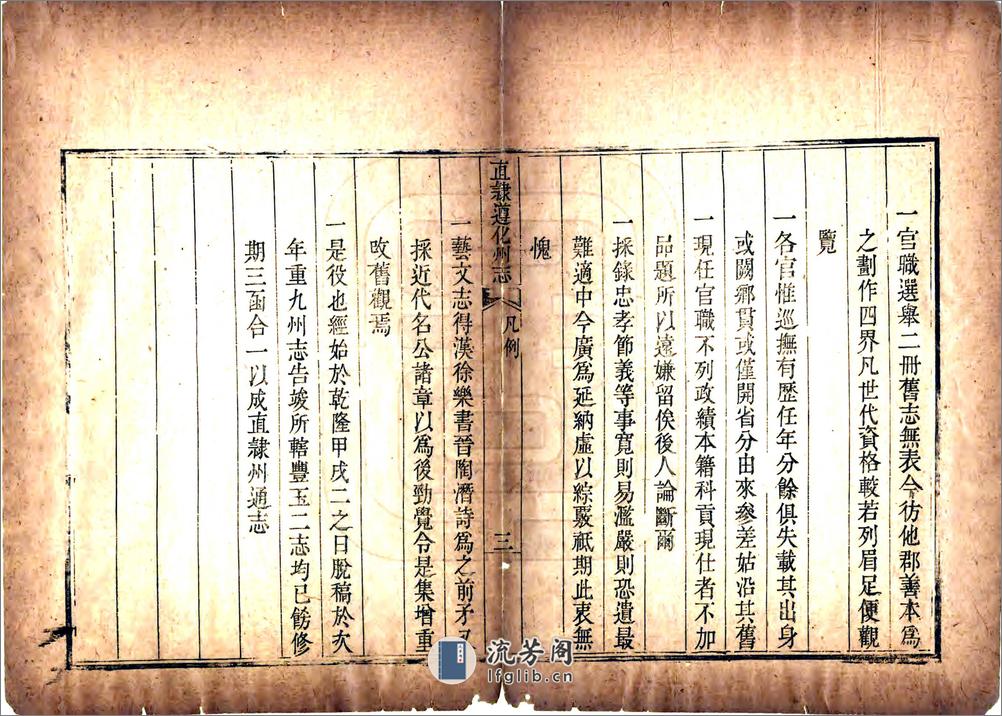 一官職選舉二冊舊志無表今彷他郡善本爲
之劃作四界凡世代資格較若列眉足便觀
覽
一各官惟巡撫有歷任年分餘俱失載其出身
或闕鄉貫或僅開省分由來參差姑沿其舊
一現任官職不列政績本籍科貢現仕者不加
品題所以遠嫌留俟後人論斷爾
一採錄忠孝節義等事寬則易濫嚴則恐遺最
難適中今廣爲延納虛以綜覈祇期此衷無
愧
直隸遵化州志
凡例
三
一藝文志得漢徐樂書晉陶潛詩爲之前矛又
採近代名公諸章以爲後勁覺令是集增重
攺舊觀焉
一是役也經始於乾隆甲戌二之日脫稿於次
年重九州志告竣所轄豐玉二志均已飭修
期三函合一以成直隸州通志
流芳阁
lfglib.cn